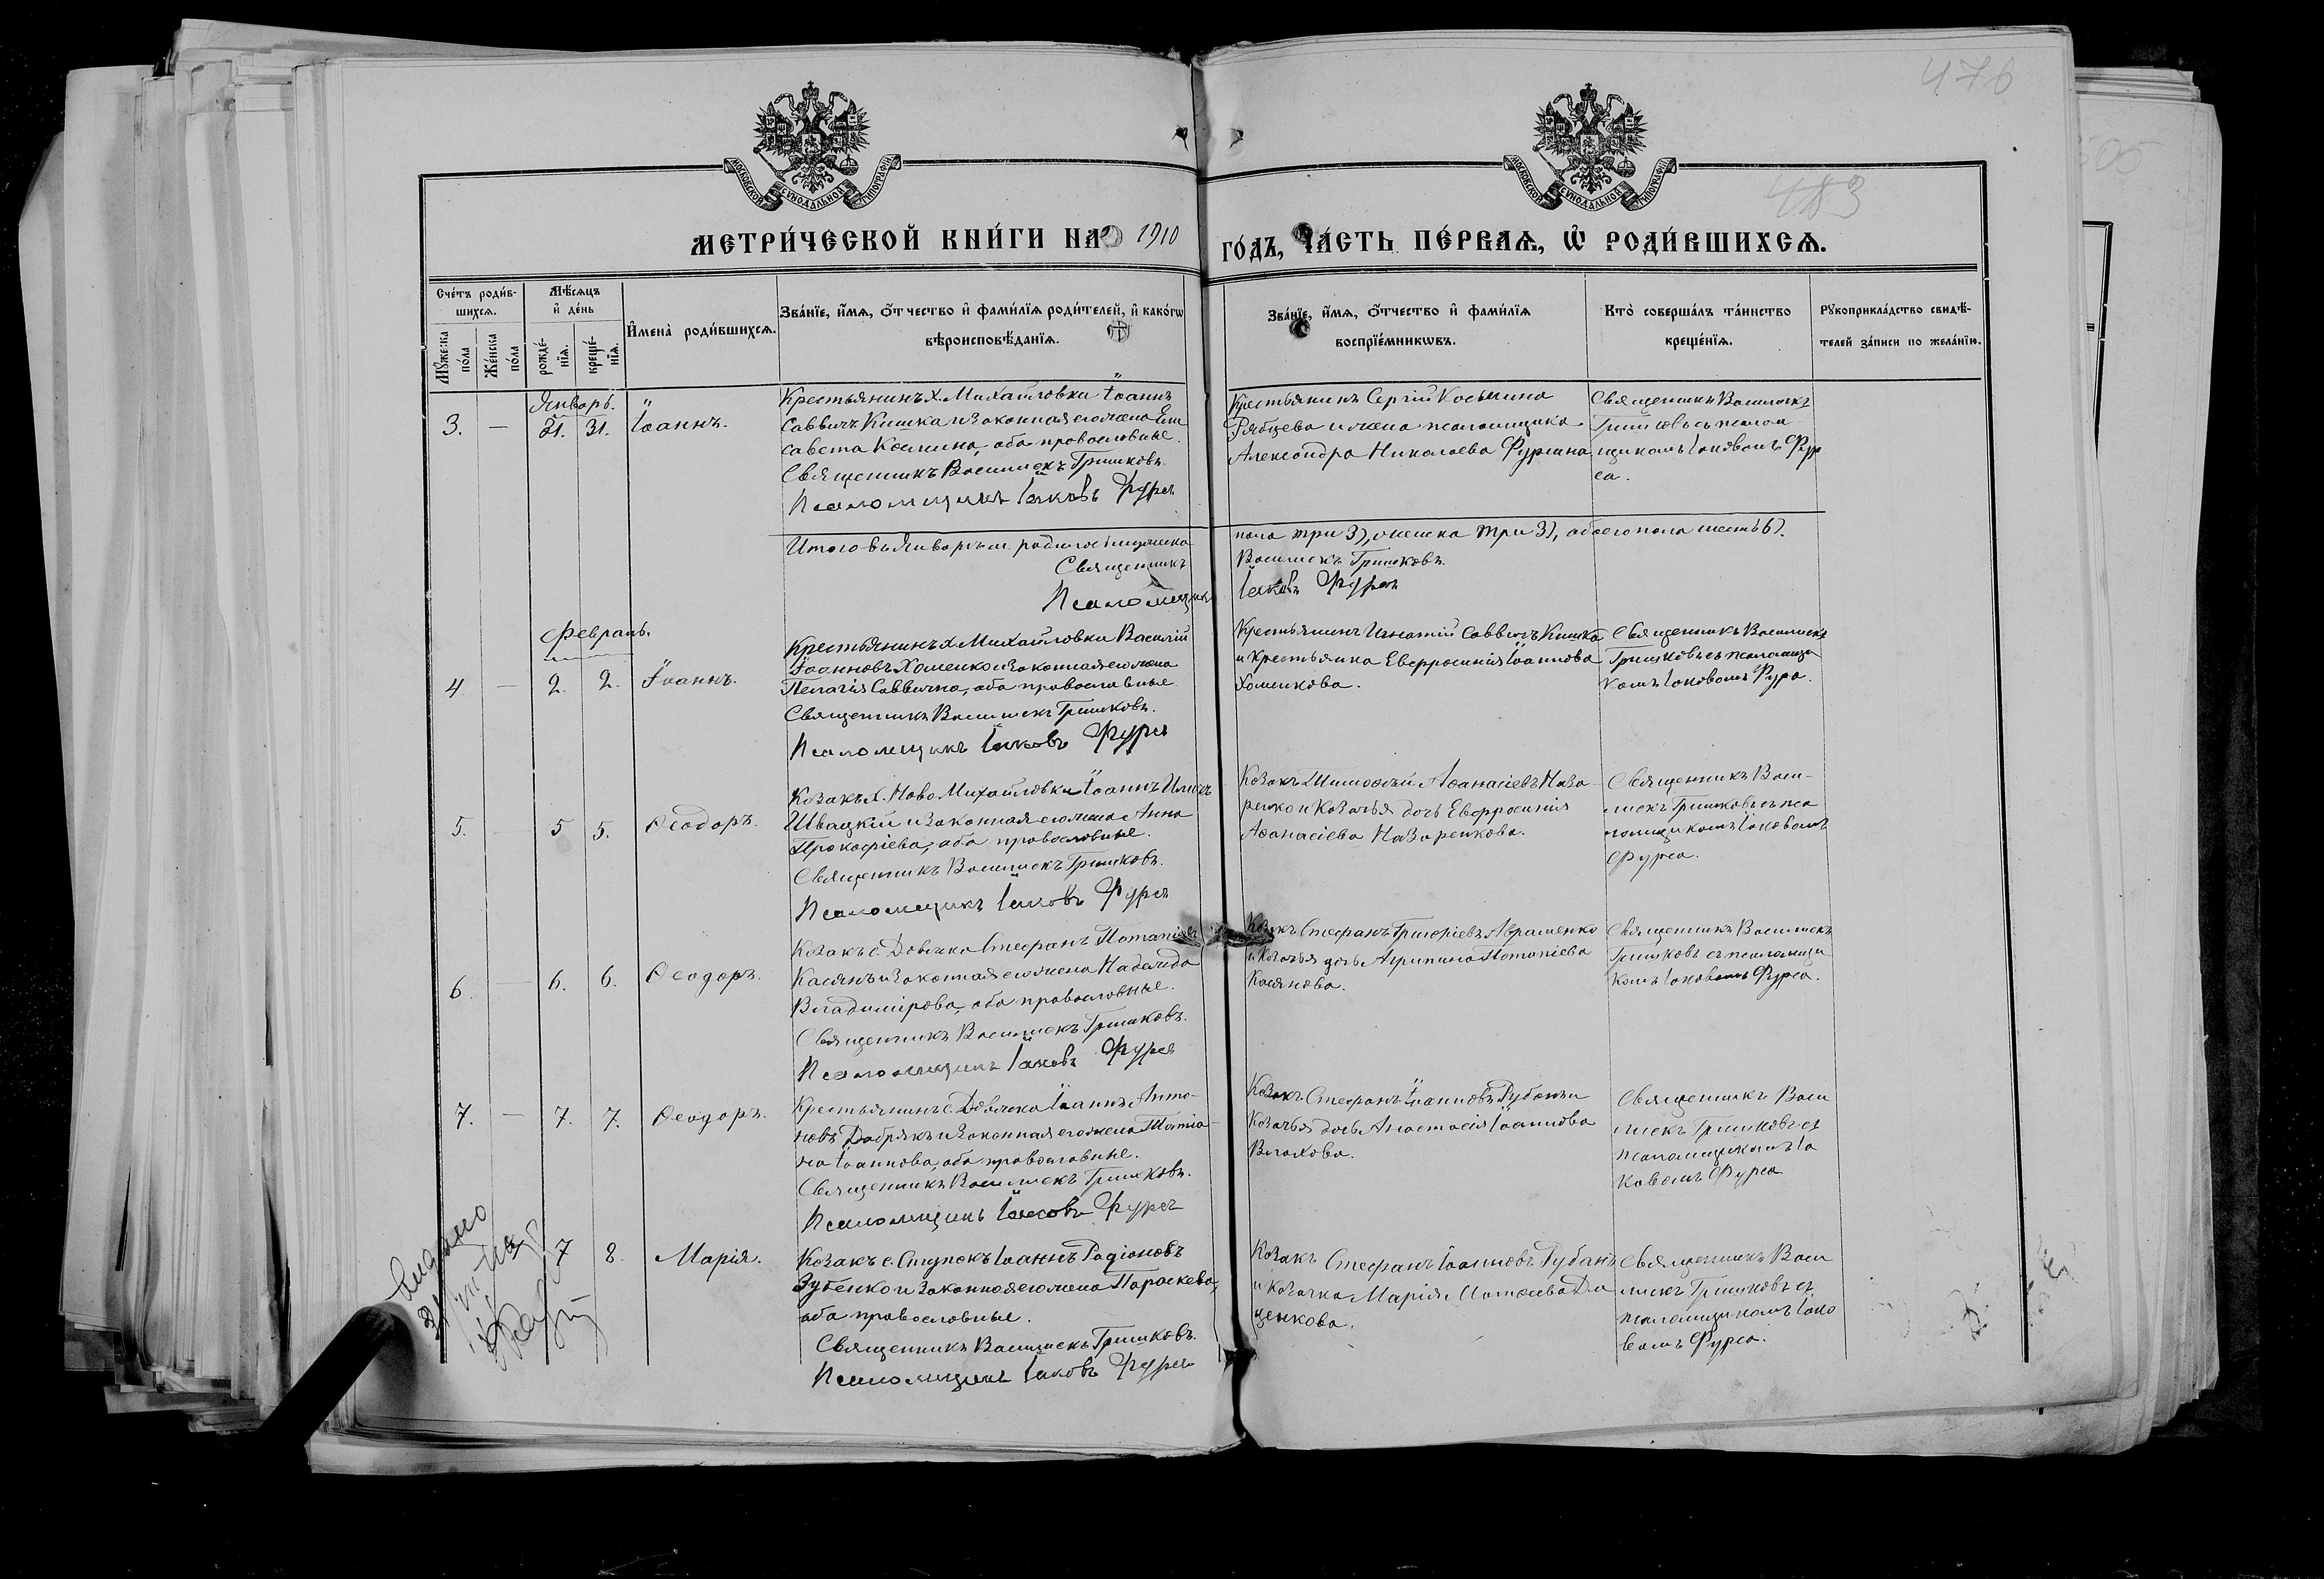 476
505
МОСКОВСКОЙ СѴНОДАЛЬНОЙ ТИПОГРАФІИ
МОСКОВСКОЙ СѴНОДАЛЬНОЙ ТИПОГРАФІИ
483
МЕТРИ́ЧЕСКОЙ КНИ́ГИ НА 1910 ГО́ДЪ, ЧА́СТЬ ПЕ́РВАѦ, Ѽ РОДИ́ВШИХСѦ.
Сче́тъ роди́в-
шихсѧ.
Мꙋ́жеска по́ла
Же́нска по́ла
Мѣ́сѧцъ
и҆ де́нь
рожде́-
нїѧ.
креще́-
нїѧ.
И҆мена̀ роди́вшихсѧ.
Зва́нїе, и҆́мѧ, ѻ҆́тчество и҆ фами́лїѧ роди́телей, и҆ како́гѡ
вѣроисповѣ́данїѧ.
Зва́нїе, и҆́мѧ, ѻ҆́тчество и҆ фами́лїѧ
воспрїе́мникѡвъ.
Кто̀ соверша́лъ та́инство
креще́нїѧ.
Рꙋкоприкла́дство свидѣ́-
телей за́писи по жела́нїю.
Январь.
3. — 31. 31. Іоаннъ.
Крестьянинъ х. Михайловки Іоаннъ
Саввичъ Кишка и законная его жена Ели
савета Косьмина, оба православные.
Священникъ Василискъ Гришковъ.
Псаломщикъ Іаковъ Фурса
Крестьянинъ Сергій Косьмина
Рябцева и жена псаломщика
Александра Николаева Фурсина
Священникъ Василискъ
Гришковъ съ псалом
щикомъ Іаковомъ Фур
са.
Итого въ Январѣ м. родилось мужеска
пола три 3), женска три 3), обоего пола шесть 6).
Священникъ Василискъ Гришковъ.
Псаломщикъ Іаковъ Фурса
Февраль.
4. — 2. 2. Іоаннъ.
Крестьянинъ х Михайловки Василій
Іоанновъ Хоменко и законная его жена
Пелагія Саввична, оба православные
Священникъ Василискъ Гришковъ.
Псаломщикъ Іаковъ Фурса
Крестьянинъ Игнатій Саввичъ Кишка
и крестьянка Евфросинія Іоаннова
Хоменкова.
Священникъ Василискъ
Гришковъ съ псаломщи
комъ Іаковомъ Фурса.
5. — 5 5. Ѳеодоръ.
Козакъ х. Ново Михайловки Іоаннъ
Швацкій и законная его жена Анна
Прокофіева, оба православные.
Священникъ Василискъ Гришковъ.
Псаломщикъ Іаковъ Фурса
Козакъ Тимофей Аѳанасіевъ Наза-
ренко и козачья дочь Евфросинія
Аѳанасіева Назаренкова.
Священникъ Васи-
лискъ Гришковъ съ пса
ломщикомъ Іаковомъ
Фурса.
6. — 6. 6. Ѳеодоръ.
Козакъ с. Стефанъ Потапіевъ
Касянъ и законная его жена Надежда
Владимірова, оба православные.
Священникъ Василискъ Гришковъ.
Псаломщикъ Іаковъ Фурса
Козакъ Стефанъ Григоріевъ Авраменко
и козачья дочь Агрипина Потапіева
Касянова.
Священникъ Василискъ
Гришковъ съ псаломщи
комъ Іаковомъ Фурса.
7. — 7. 7. Ѳеодоръ.
Крестьянинъ с. Іоаннъ Анто-
новъ Добрякъ и законная его жена Татіа-
на Іоаннова, оба православные.
Священникъ Василискъ Гришковъ.
Псаломщикъ Іаковъ Фурса
Козакъ Стефанъ Іоанновъ Рубанъ и
козачья дочь Анастасія Іоаннова
Власова.
Священникъ Васи
лискъ Гришковъ съ
псаломщикомъ Іа
ковомъ Фурса
7 8. Марія.
Козакъ с. Ступокъ Іоаннъ Родіоновъ
Зубенко и законная его жена Параскева,
оба православные.
Священникъ Василискъ Гришковъ.
Псаломщикъ Іаковъ Фурса
Козакъ Стефанъ Іоанновъ Рубанъ
и козачка Марія Матѳеева До
ценкова.
Священникъ Васи
лискъ Гришковъ съ
псаломщикомъ Іако
вомъ Фурса.